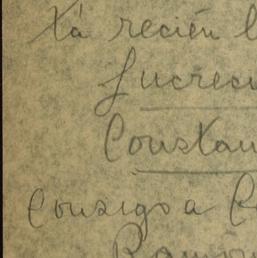 Xá recién l
Lucreci
Constan
Consigo a C
Ramón